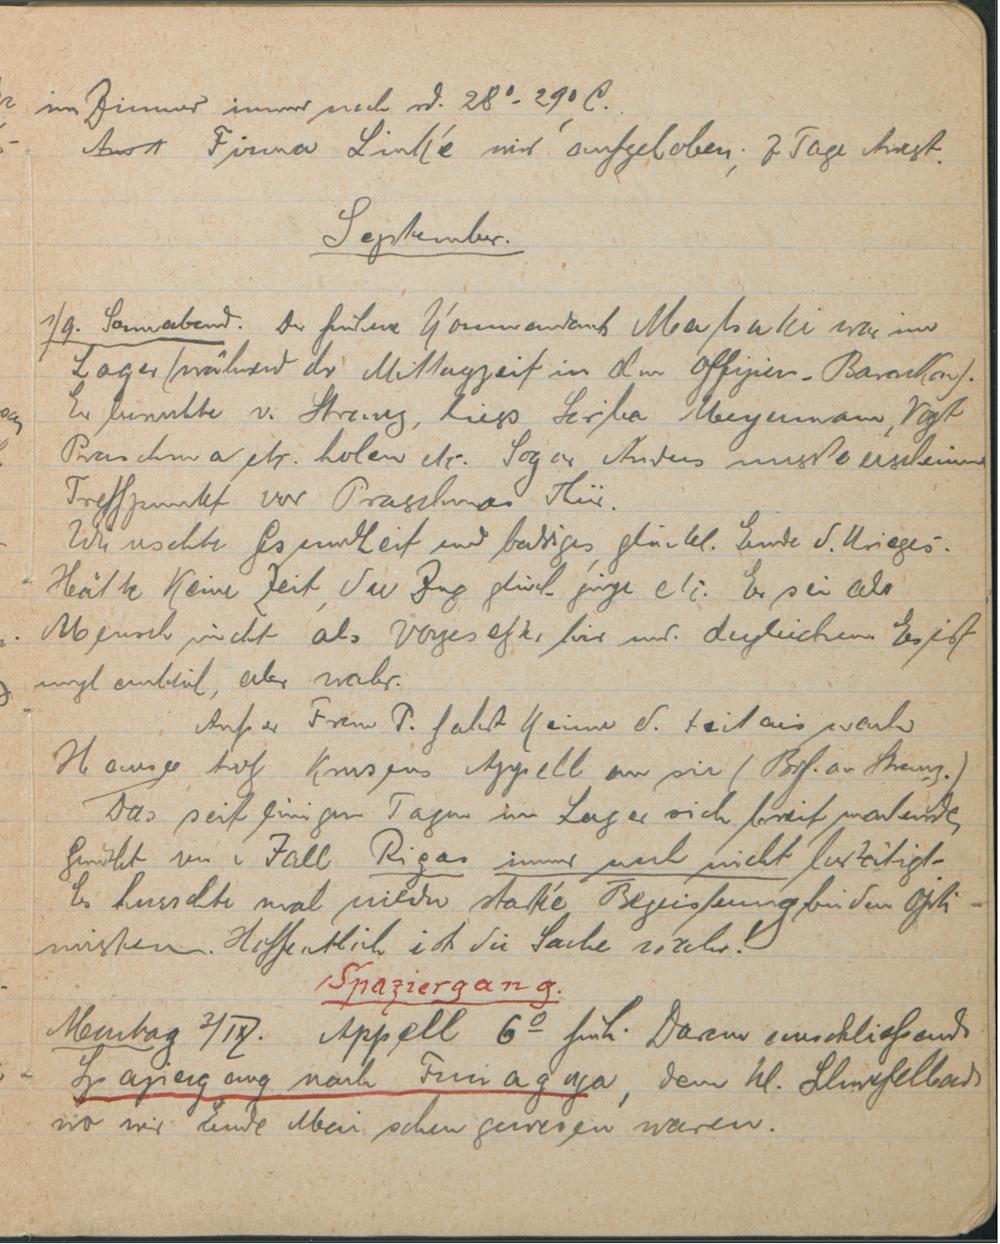 im Zimmer immer noch rd. 28°-29° C.
Firma Linke wird aufgehoben; 7 Tage Arrest.
September.
1/9. Sonnabend. Der frühere Kommandant Matsaki war im
Lager (während der Mittagzeit in den Offizier-Baracken).
Er besuchte v. Strang, liess Scriba Meyermann, Vogt
Praschma etc. holen etc. Sogar Anders musste erscheinen
Treffpunkt vor Praschmas Tür.
Wünschte Gesundheit und baldiges, glückl. Ende d. Krieges.
Hätte keine Zeit, der Zug gleich ginge etc. Er sei als
Mensch nicht als Vorgesetzter hier und dergleichen. Es ist
aber wahr.
Ausser Frau P. fährt keine d. nach
Hause trotz Krusens Appell an sie (Brf. an Strang.)
Das seit einigen Tagen im Lager sich breit machende
Gerücht von Fall Rigas immer noch nicht bestätigt.
Es herrschte mal wieder starke Begeisterung bei den Opti-
misten. Hoffentlich ist die Sache wahr!
Spaziergang.
Montag 3/IX. Appell 6° früh. Daran anschliessend
Spaziergang nach Funagoya, dem kl. Schwefelbad
wo wir Ende Mai schon gewesen waren.